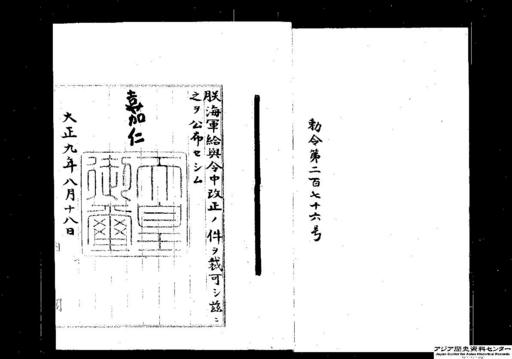 勅令第二百七十六号
朕海軍給與令中改正ノ件ヲ裁可シ茲ニ
之ヲ公布セシム
嘉仁
天皇御璽
大正九年八月十八日
アジア歴史資料センター
Japan Center for Asian Historical Records